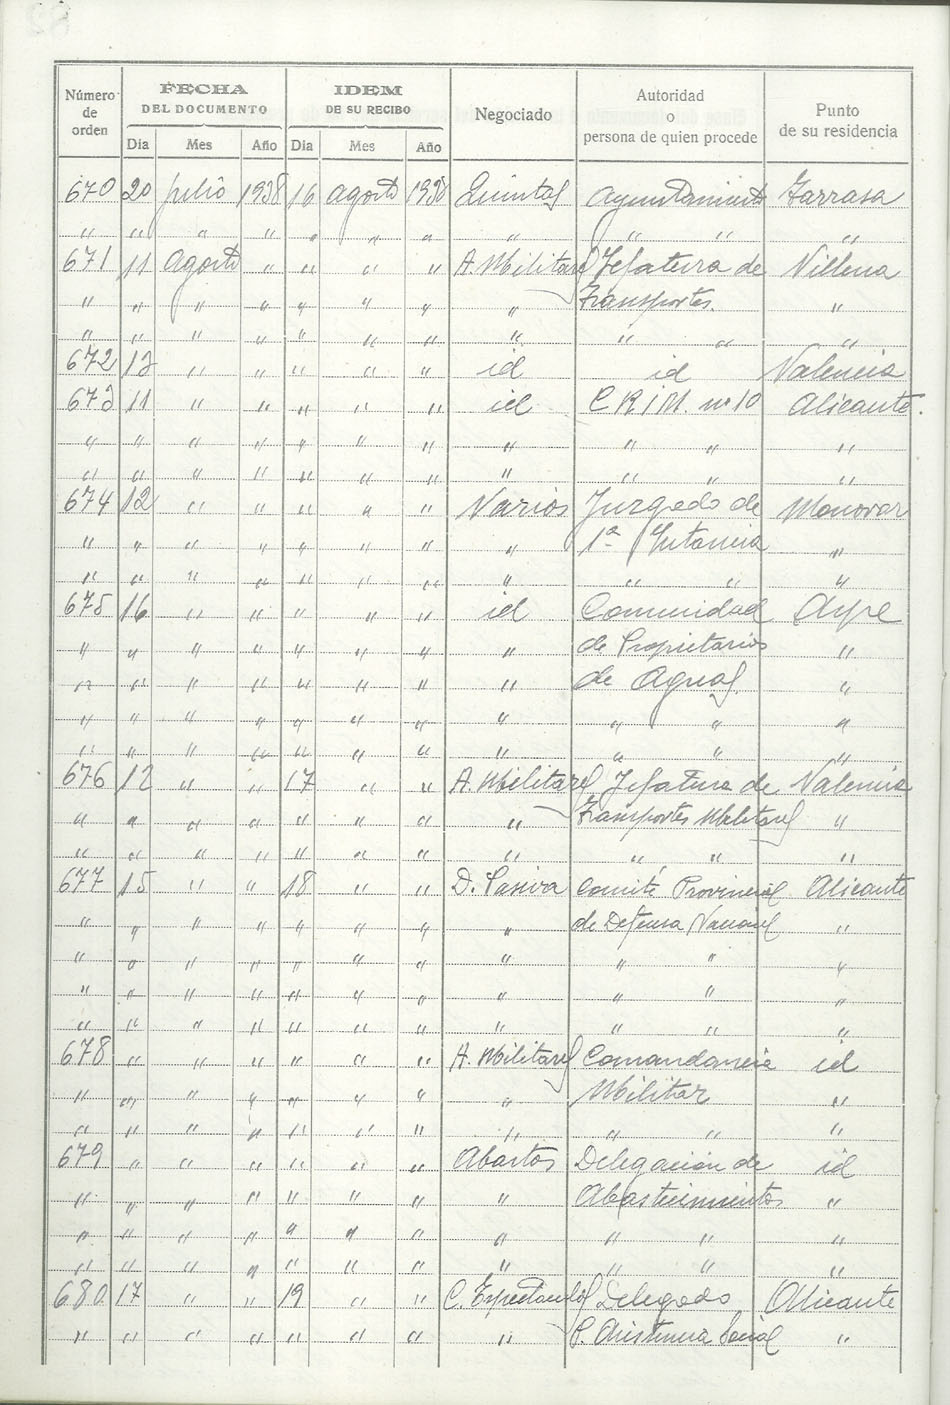 Número de orden FECHA DEL DOCUMENTO IDEM DE SU RECIBO Negociado Autoridad o persona de quien procede Punto de su residencia
Dia Mes Año Dia Mes Año
670 20 julio 1938 16 agosto 1938 Quintas Ayuntamiento Tarrasa
" " " " " " " " " " "
671 11 Agosto " " " " A. Militares Jefatura de Villena
" " " " " " " " Transportes. "
" " " " " " " " " " "
672 13 " " " " " id id Valencia
673 11 " " " " " id C R I M. nº 10 Alicante.
" " " " " " " " " " "
" " " " " " " " " " "
674 12 " " " " " Varios Juzgado de Monovar
" " " " " " " " 1ª Intancia "
" " " " " " " " " " "
675 16 " " " " " id Comunidad Aspe
" " " " " " " " de Propietarios "
" " " " " " " " de Aguas. "
" " " " " " " " " " "
" " " " " " " " " " "
676 12 " " 17 " " A. Militares Jefatura de Valencia
" " " " " " " " Transportes Militares "
" " " " " " " " " " "
677 15 " " 18 " " D. Pasiva Comité Provincial Alicante
" " " " " " " " de Defensa Nacional "
" " " " " " " " " " "
" " " " " " " " " " "
" " " " " " " " " " "
678 " " " " " " A. Militares Comandancia id
" " " " " " " " Militar "
" " " " " " " " " " "
679 " " " " " " Abastos Delegación de id
" " " " " " " " Abastecimientos "
" " " " " " " " " " "
" " " " " " " " " " "
680 17 " " 19 " " C. Espectaculos Delegado Alicante
" " " " " " " " P. Asistencia Social "